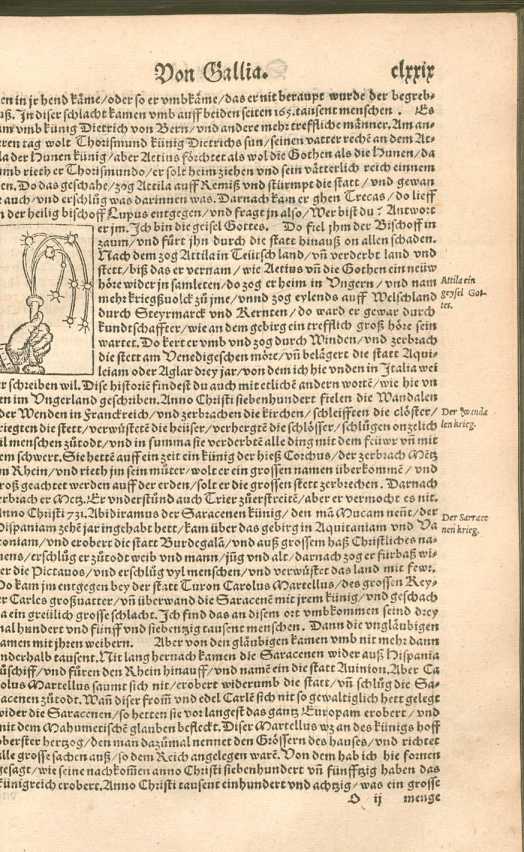 Von Gallia. clxxix
en in jr hend käme/oder so er vmbkäme/das er nit beraupt wurde der begreb-
uß. In diser schlacht kamen vmb auff beiden seiten 165. tausent menschen. Es
am vmb künig Dietrich von Bern/vnd andere mehr treffliche männer. Am an-
eren tag wolt Thorismund künig Dietrichs sun/seinen vatter rechē an dem At-
la der Hunen künig/aber Aetius förchtet als wol die Gothen als die Hunen/da
umb rieth er Thorismundo/er solt heim ziehen vnd sein vätterlich reich einnem
en. Do das geschahe/zog Attila auff Remiß vnd stürmpt die statt/vnd gewan
e auch/vnd erschlůg was darinnen was. Darnach kam er ghen Trecas/do lieff
n der heilig bischoff Lupus entgegen/vnd fragt jn also/Wer bist du? Antwort
er jm. Ich bin die geisel Gottes. Do fiel jhm der Bischoff in
zaum/vnd fůrt jhn durch die statt hinauß on allen schaden.
Nach dem zog Attila in Teütsch land/vñ verderbt land vnd
stett/biß das er vernam/wie Aetius vñ die Gothen ein neüw
höre wider jn samleten/do zog er heim in Vngern/vnd nam
mehr kriegßuolck zů jme/vnnd zog eylends auff Welschland
durch Steyrmarck vnd Kernten/do ward er gewar durch
kundtschaffter/wie an dem gebirg ein trefflich groß höre sein
wartet. Do kert er vmb vnd zog durch Winden/vnd zerbrach
die stett am Venedigeschen möre/vñ belägert die statt Aqui-
leiam oder Aglar drey jar/von dem ich hie vnden in Italia wei
Attila ein
geysel Got-
tes.
er schreiben wil. Dise historiē findest du auch mit etlichē andern wortē/wie hie vn
en im Vngerland geschriben. Anno Christi siebenhundert fielen die Wandalen
der Wenden in Franckreich/vnd zerbrachen die kirchen/schleifften die clöster/
riegten die stett/verwüstetē die heüser/verhergtē die schlösser/schlůgen onzelich
il menschen zůtodt/vnd in summa sie verderbtē alle ding mit dem feüwr vñ mit
em schwert. Sie hettē auff ein zeit ein künig der hieß Corchus/der zerbrach Mētz
m Rhein/vnd rieth jm sein můter/wolt er ein grossen namen überkommē/vnd
roß geachtet werden auff der erden/solt er die grossen stett zerbrechen. Darnach
erbrach er Metz. Er vnderstůnd auch Trier zůerstreitē/aber er vermocht es nit.
Der Wanda
len krieg.
Anno Christi 731. Abidiramus der Saracenen künig/den mā Mucam neñt/der
Hispaniam zehē jar ingehabt hett/kam über das gebirg in Aquitaniam vnd Va
coniam/vnd erobert die statt Burdegalā/vnd auß grossem haß Christliches na-
mens/erschlůg er zůtodt weib vnd mann/jũg vnd alt/darnach zog er fürbaß wi-
er die Pictauos/vnd erschlůg vyl menschen/vnd verwüst das land mit fewr.
Der Sarrace
nen krieg.
Do kam jm entgegen bey der statt Turon Carolus Martellus/des grossen Key-
er Carles großuatter/vñ überwand die Saracenē mit jrem künig/vnd geschach
a ein greülich grosse schlacht. Ich find das an disem ort vmbkommen seind drey
mal hundert vnd fünff vnd siebenzig tausent menschen. Dann die vngläubigen
amen mit jhren weibern. Aber von den gläubigen kamen vmb nit mehr dann
nderhalb tausent. Nit lang hernach kamen die Saracenen wider auß Hispania
ůschiff/vnd fůren den Rhein hinauff/vnd namē ein die statt Auinion. Aber Ca
olus Martellus saumt sich nit/erobert widerumb die statt/vñ schlůg die Sa-
acenen zůtodt. Wañ diser from̃ vnd edel Carle sich nit so gewaltiglich hett gelegt
wider die Saracenen/so hetten sie vor langest das gantz Europam erobert/vnd
mit dem Mahumetischē glauben befleckt. Diser Martellus wz an des künigs hoff
oberster hertzog/den man dazůmal nennet den Grössern des hauses/vnd richtet
alle grosse sachen auß/so dem Reich angelegen warē. Von dem hab ich hie fornen
gesagt/wie seine nachkom̃en anno Christi siebenhundert vñ fünfftzig haben das
künigreich erobert. Anno Christi tausent einhundert vnd achtzig/was ein grosse
O ij menge